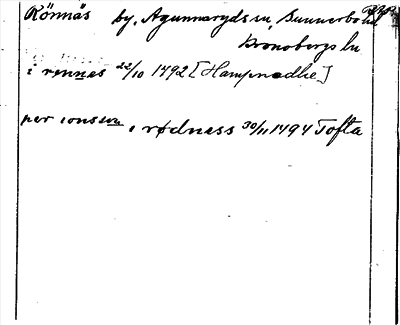 Rönnäs by, Agunnaryds sn, Sunnerbo hd
Kronobergs ln
i rønnes 22/10 1492 [Hampnadhe]
per ionsson i rødness 30/11 1494 Tofta